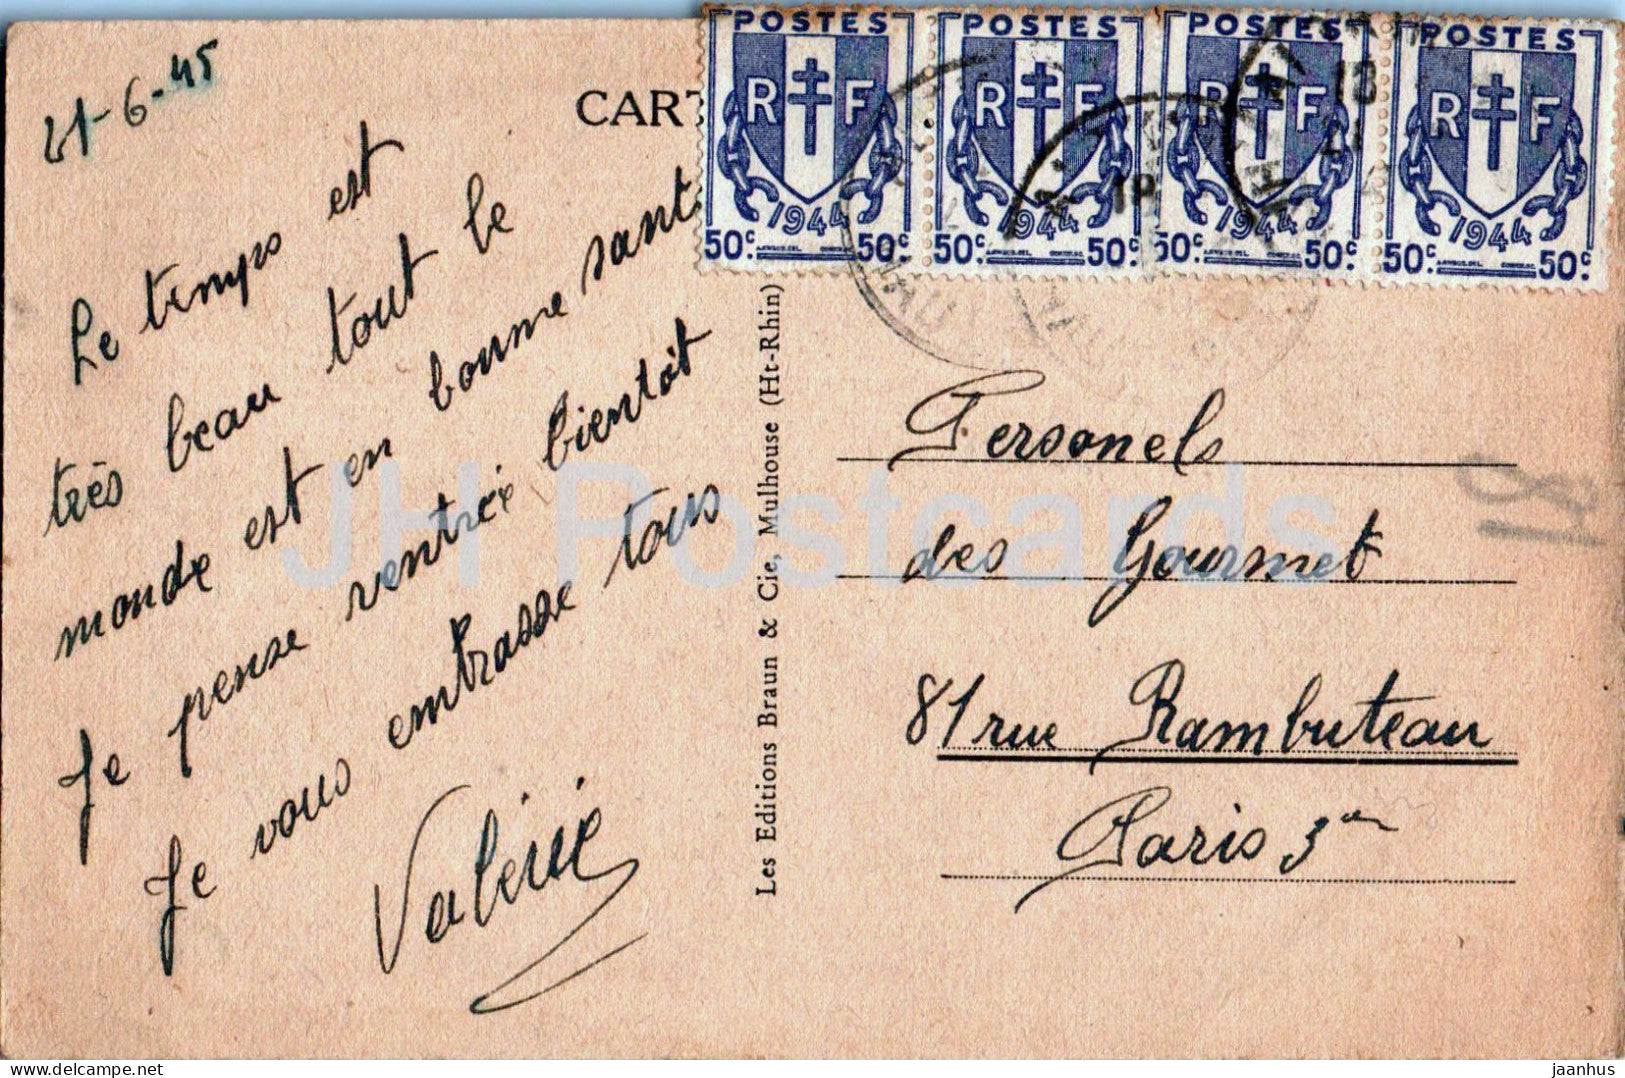 21-6-45
Le temps est
très beau tout le
monde est en bonne santé
Je pense rentrée bientôt
Je vous embrasse tous
Valérie
CART
POSTES POSTES POSTES POSTES
R F R F R F R F
1944 1944 1944 1944
50c 50c 50c 50c 50c 50c 50c 50c
Les Editions Braun & Cie, Mulhouse (Ht-Rhin)
Personels
des Gourmet
81 rue Rambuteau
Paris 3em
18
JH Postcards
delcampe.net
jaanhus